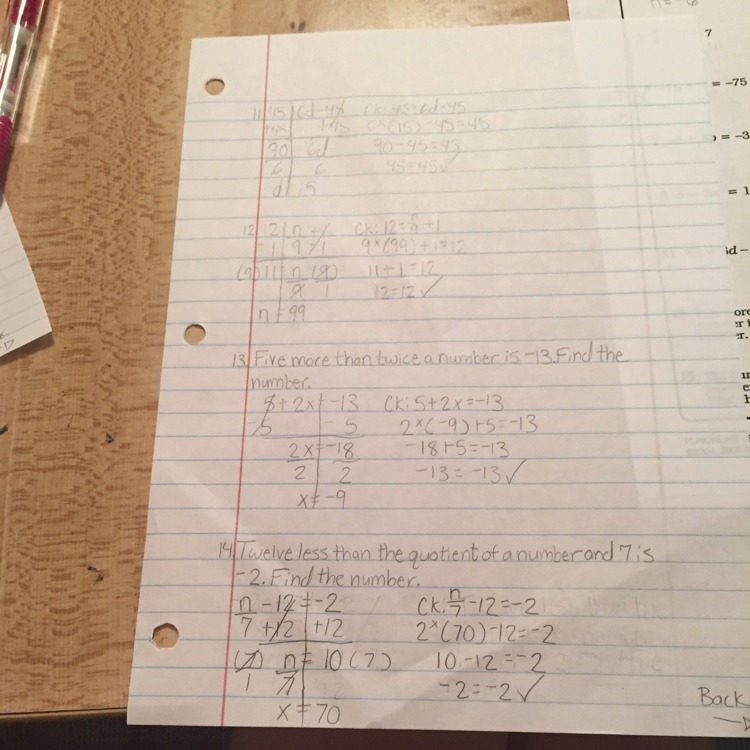 n = 6
7
= -75
= -3
= 1
11. 45 | 6d - 45 Ck: 45 = 6d - 45
+45 | +45 6×(15) - 45 = 45
90 | 6d 90 - 45 = 45
6 | 6 45 = 45 ✓
d = 15
12. 12 | n + 1 Ck: 12 = n/9 + 1
- 1 | 9 - 1 9×(99) + 1 = 12
(9) 11 = n (9) 11 + 1 = 12
9 1 12 = 12 ✓
n = 99
13. Five more than twice a number is -13. Find the
number.
5 + 2x = -13 Ck: 5 + 2x = -13
-5 - 5 2×(-9) + 5 = -13
2x = -18 -18 + 5 = -13
2 2 -13 = -13 ✓
x = -9
14. Twelve less than the quotient of a number and 7 is
-2. Find the number.
n - 12 = -2 Ck: n/7 - 12 = -2
7 +12 +12 2×(70) - 12 = -2
(7) n = 10 (7) 10 - 12 = -2
1 7 -2 = -2 ✓
x = 70
Back